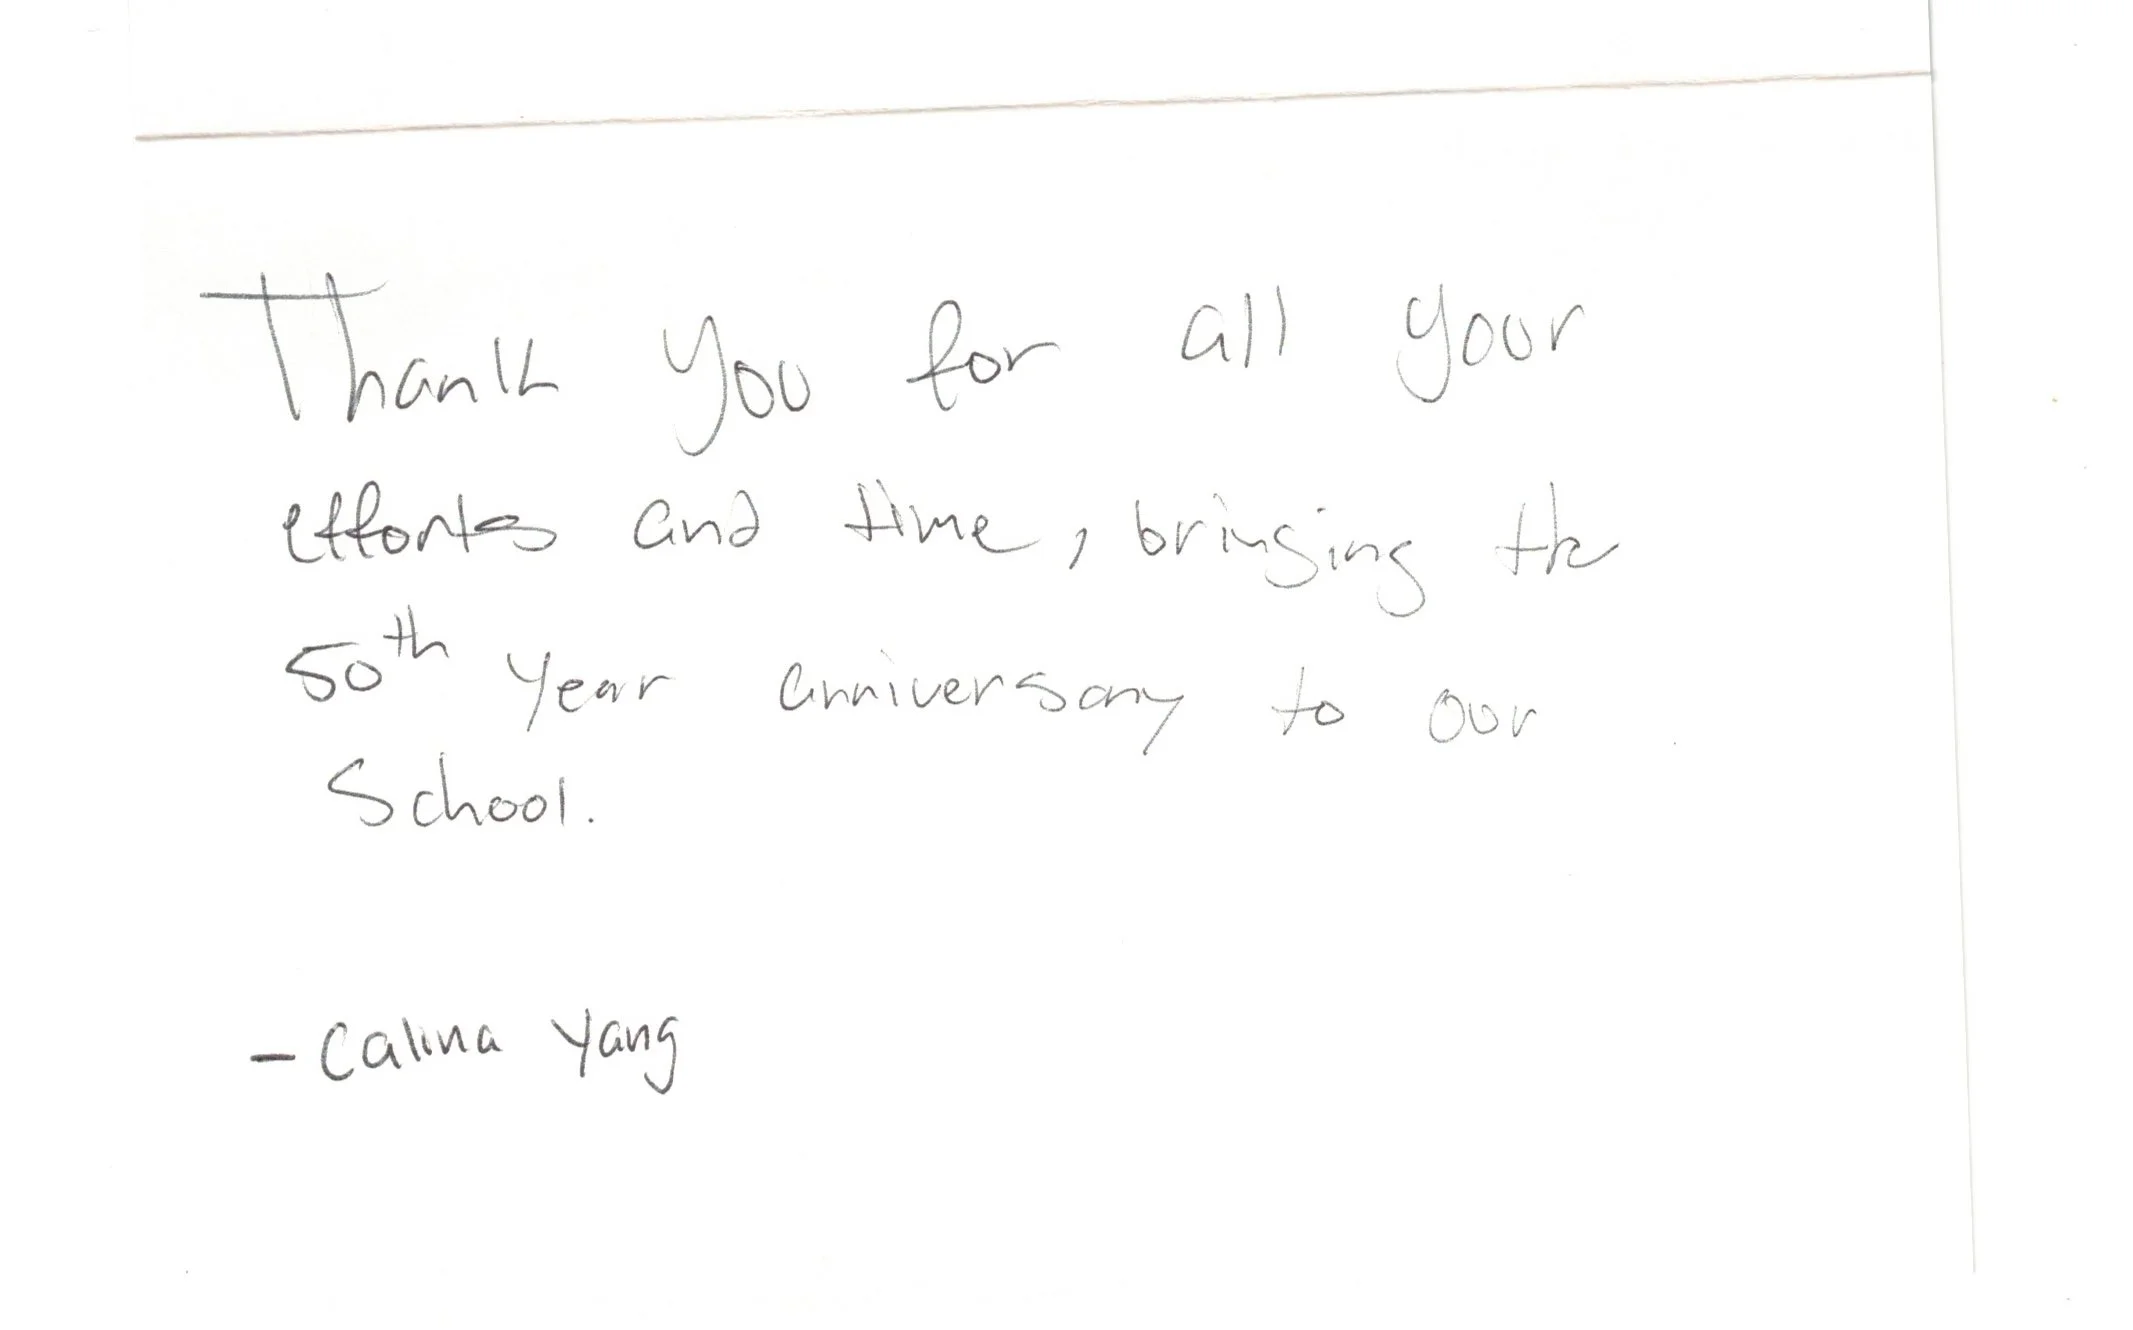 Thank you for all your
efforts and time, bringing the
50th year anniversary to our
School.
- Calina Yang